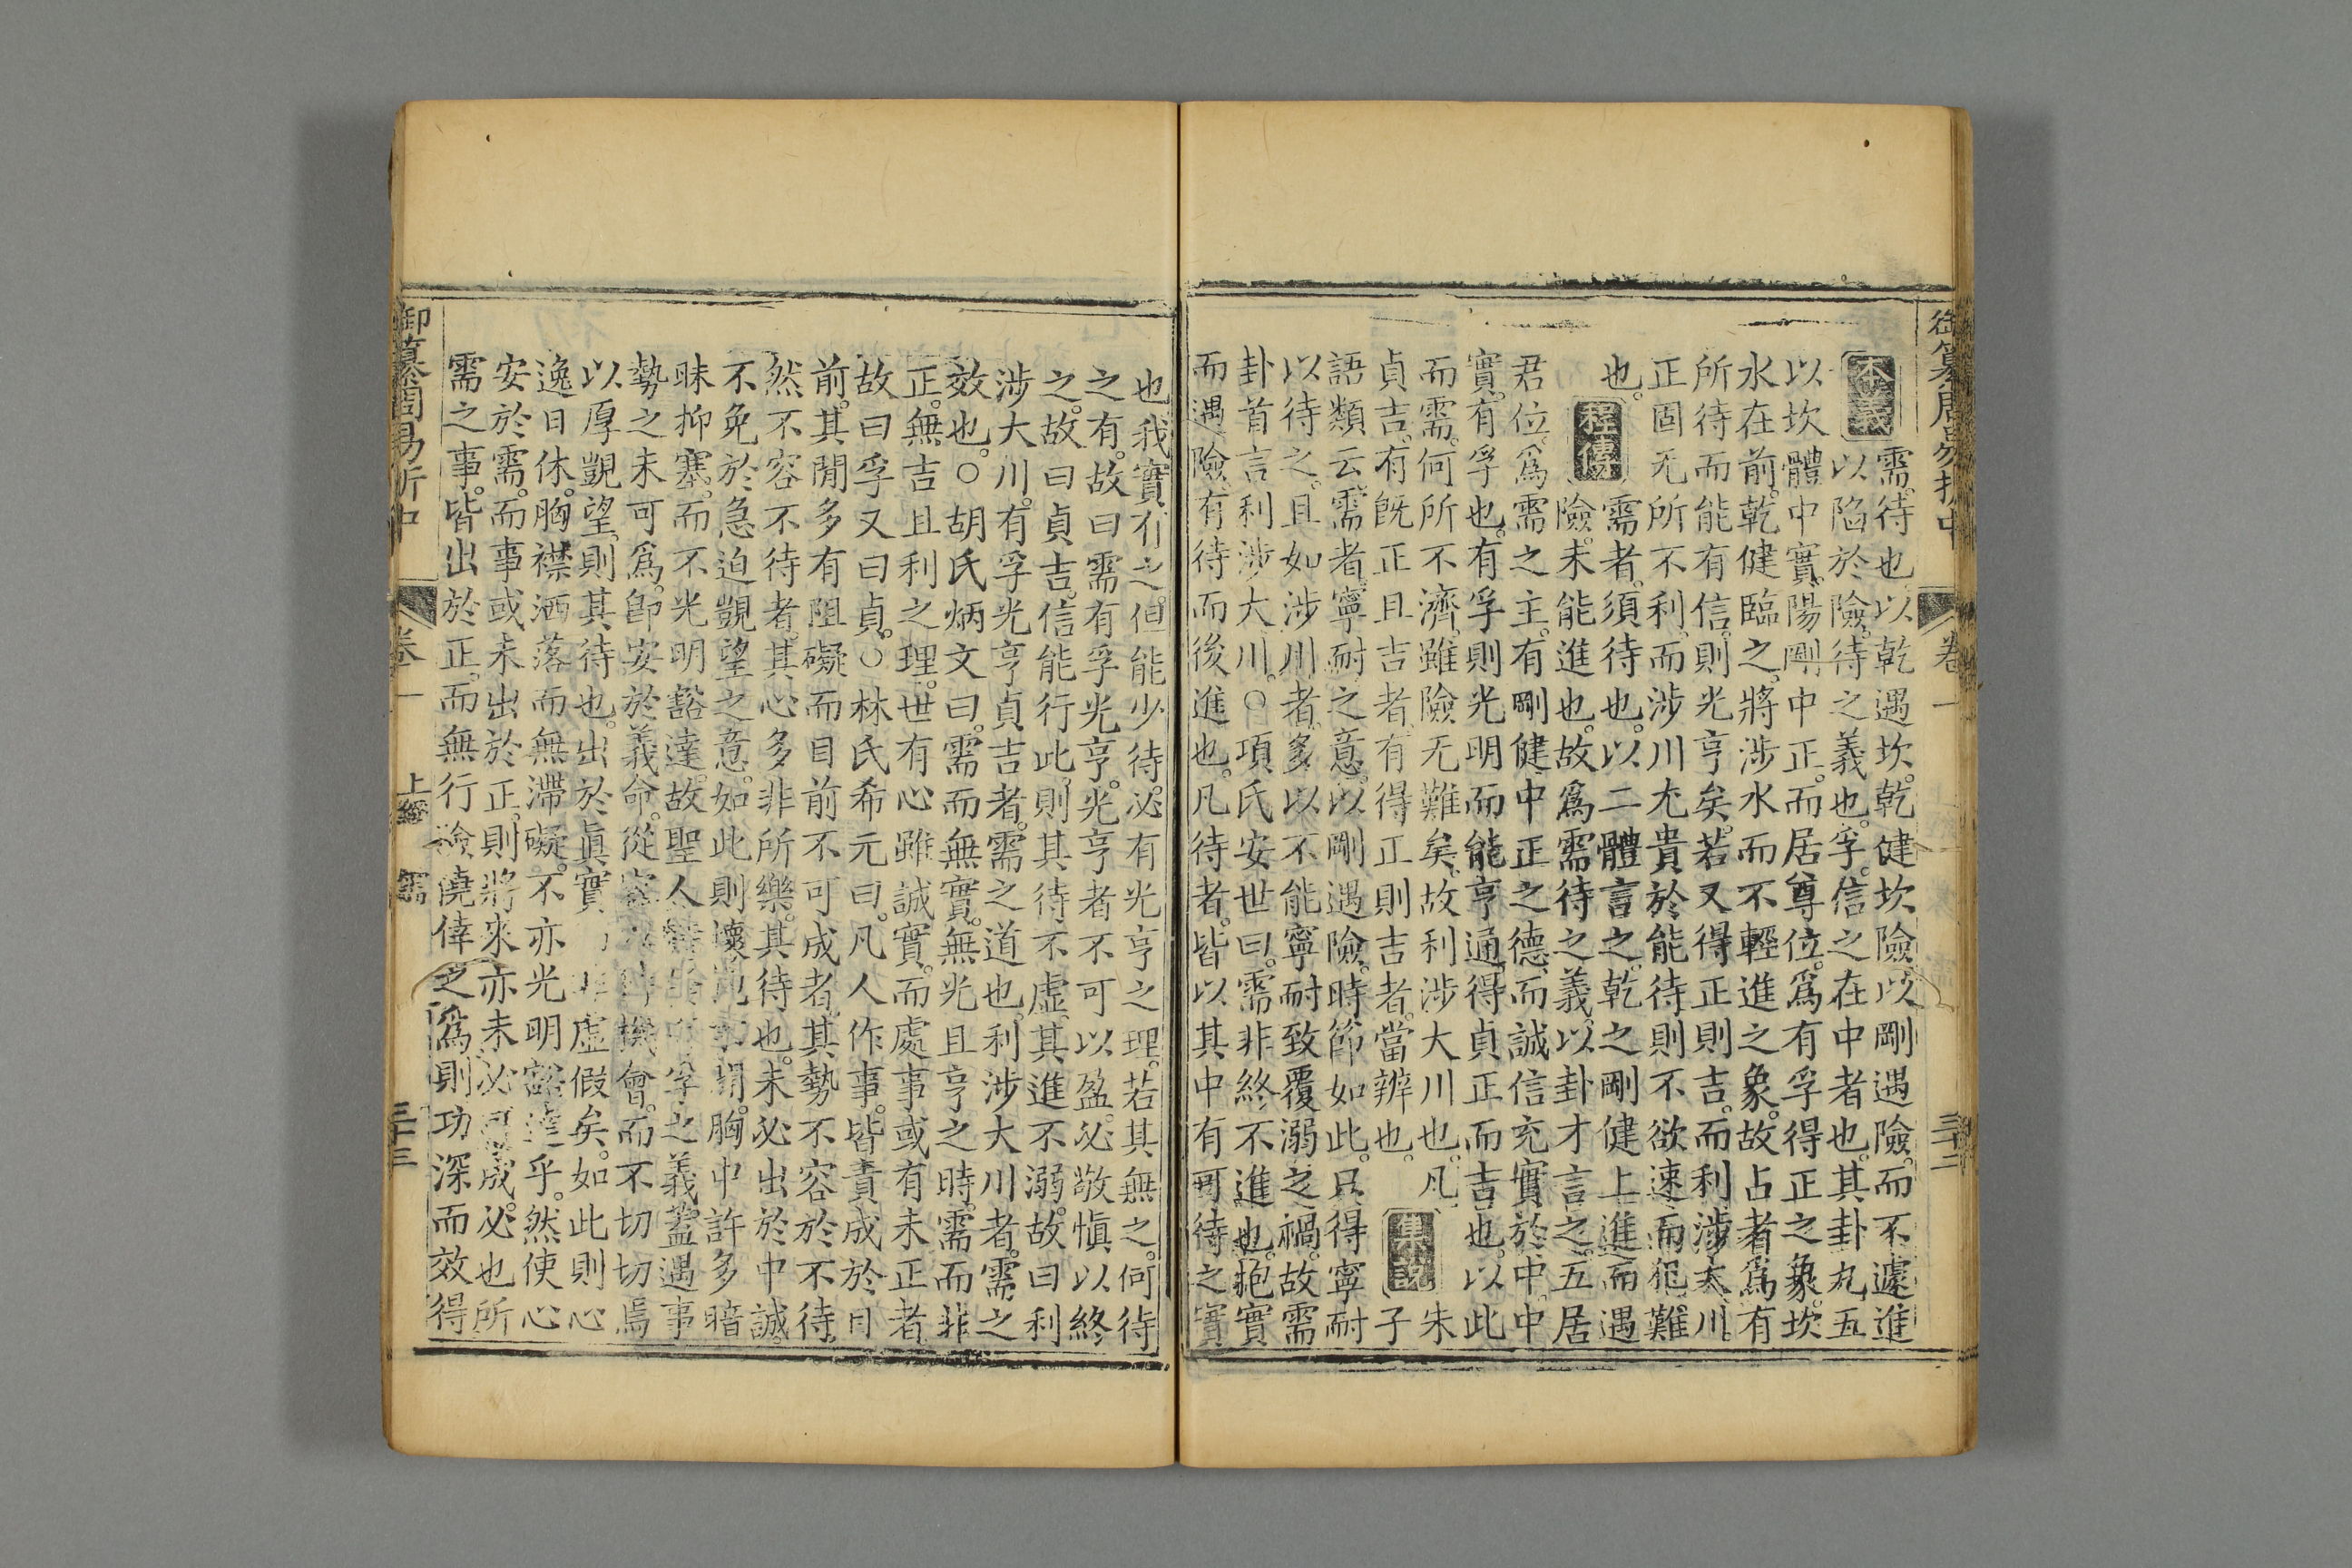 御纂周易折中
卷一
三十二
本義
需。待也。以乾遇坎。乾健坎險。以剛遇險。而不遽進
以陷於險。待之義也。孚。信之在中者也。其卦九五
以坎體中實。陽剛中正。而居尊位。爲有孚得正之象。坎
水在前。乾健臨之。將涉水而不輕進之象。故占者爲有
所待而能有信。則光亨矣。若又得正則吉。而利涉大川。
正固无所不利。而涉川尤貴於能待則不欲速而犯難
也。
程傳
需者。須待也。以二體言之。乾之剛健上進而遇
險。未能進也。故爲需待之義。以卦才言之。五居
君位。爲需之主。有剛健中正之德。而誠信充實於中。中
實。有孚也。有孚則光明而能亨通。得貞正而吉也。以此
而需。何所不濟。雖險无難矣。故利涉大川也。凡
貞吉。有既正且吉者。有得正則吉者。當辨也。
集說
朱
子
語類云。需者。寧耐之意。以剛遇險。時節如此。只得寧耐
以待之。且如涉川者。多以不能寧耐致覆溺之禍。故需
卦首言利涉大川。○項氏安世曰。需非終不進也。抱實
而遇險。有待而後進也。凡待者。皆以其中有可待之實
也。我實有之。但能少待。必有光亨之理。若其無之。何待
之有。故曰需有孚光亨。光亨者不可以盈。必敬慎以終
之。故曰貞吉。信能行此。則其待不虛。其進不溺。故曰利
涉大川。有孚光亨貞吉者。需之道也。利涉大川者。需之
效也。○胡氏炳文曰。需而無實。無光且亨之時。需而非
正。無吉且利之理。世有心雖誠實。而處事或有未正者
故曰孚又曰貞。○林氏希元曰。凡人作事。皆責成於目
前。其閒多有阻礙而目前不可成者。其勢不容於不待。
然不容不待者。其心多非所樂。其待也。未必出於中誠。
不免於急迫覬望之意。如此則懷抱不開。胸中許多暗
昧抑塞。而不光明豁達。故聖人特發有孚之義。蓋遇事
勢之未可爲。卽安於義命。從容以待機會。而不切切焉
以厚覬望。則其待也。出於眞實而非虛假矣。如此則心
逸日休。胸襟洒落而無滯礙。不亦光明豁達乎。然使心
安於需。而事或未出於正。則將來亦未必可成。必也所
需之事。皆出於正。而無行險僥倖之爲。則功深而效得
御纂周易折中
卷一
上經
需
三十三